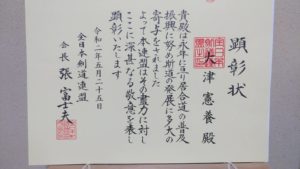 顕彰状
大津憲養殿
貴殿は永年に亘り居合道の普及
振興に努め斯道の発展に多大の
寄与をされました
よって本連盟はその盡力に対し
ここに深甚なる敬意を表し
顕彰いたします
令和二年五月二十五日
全日本剣道連盟
会長 張富士夫